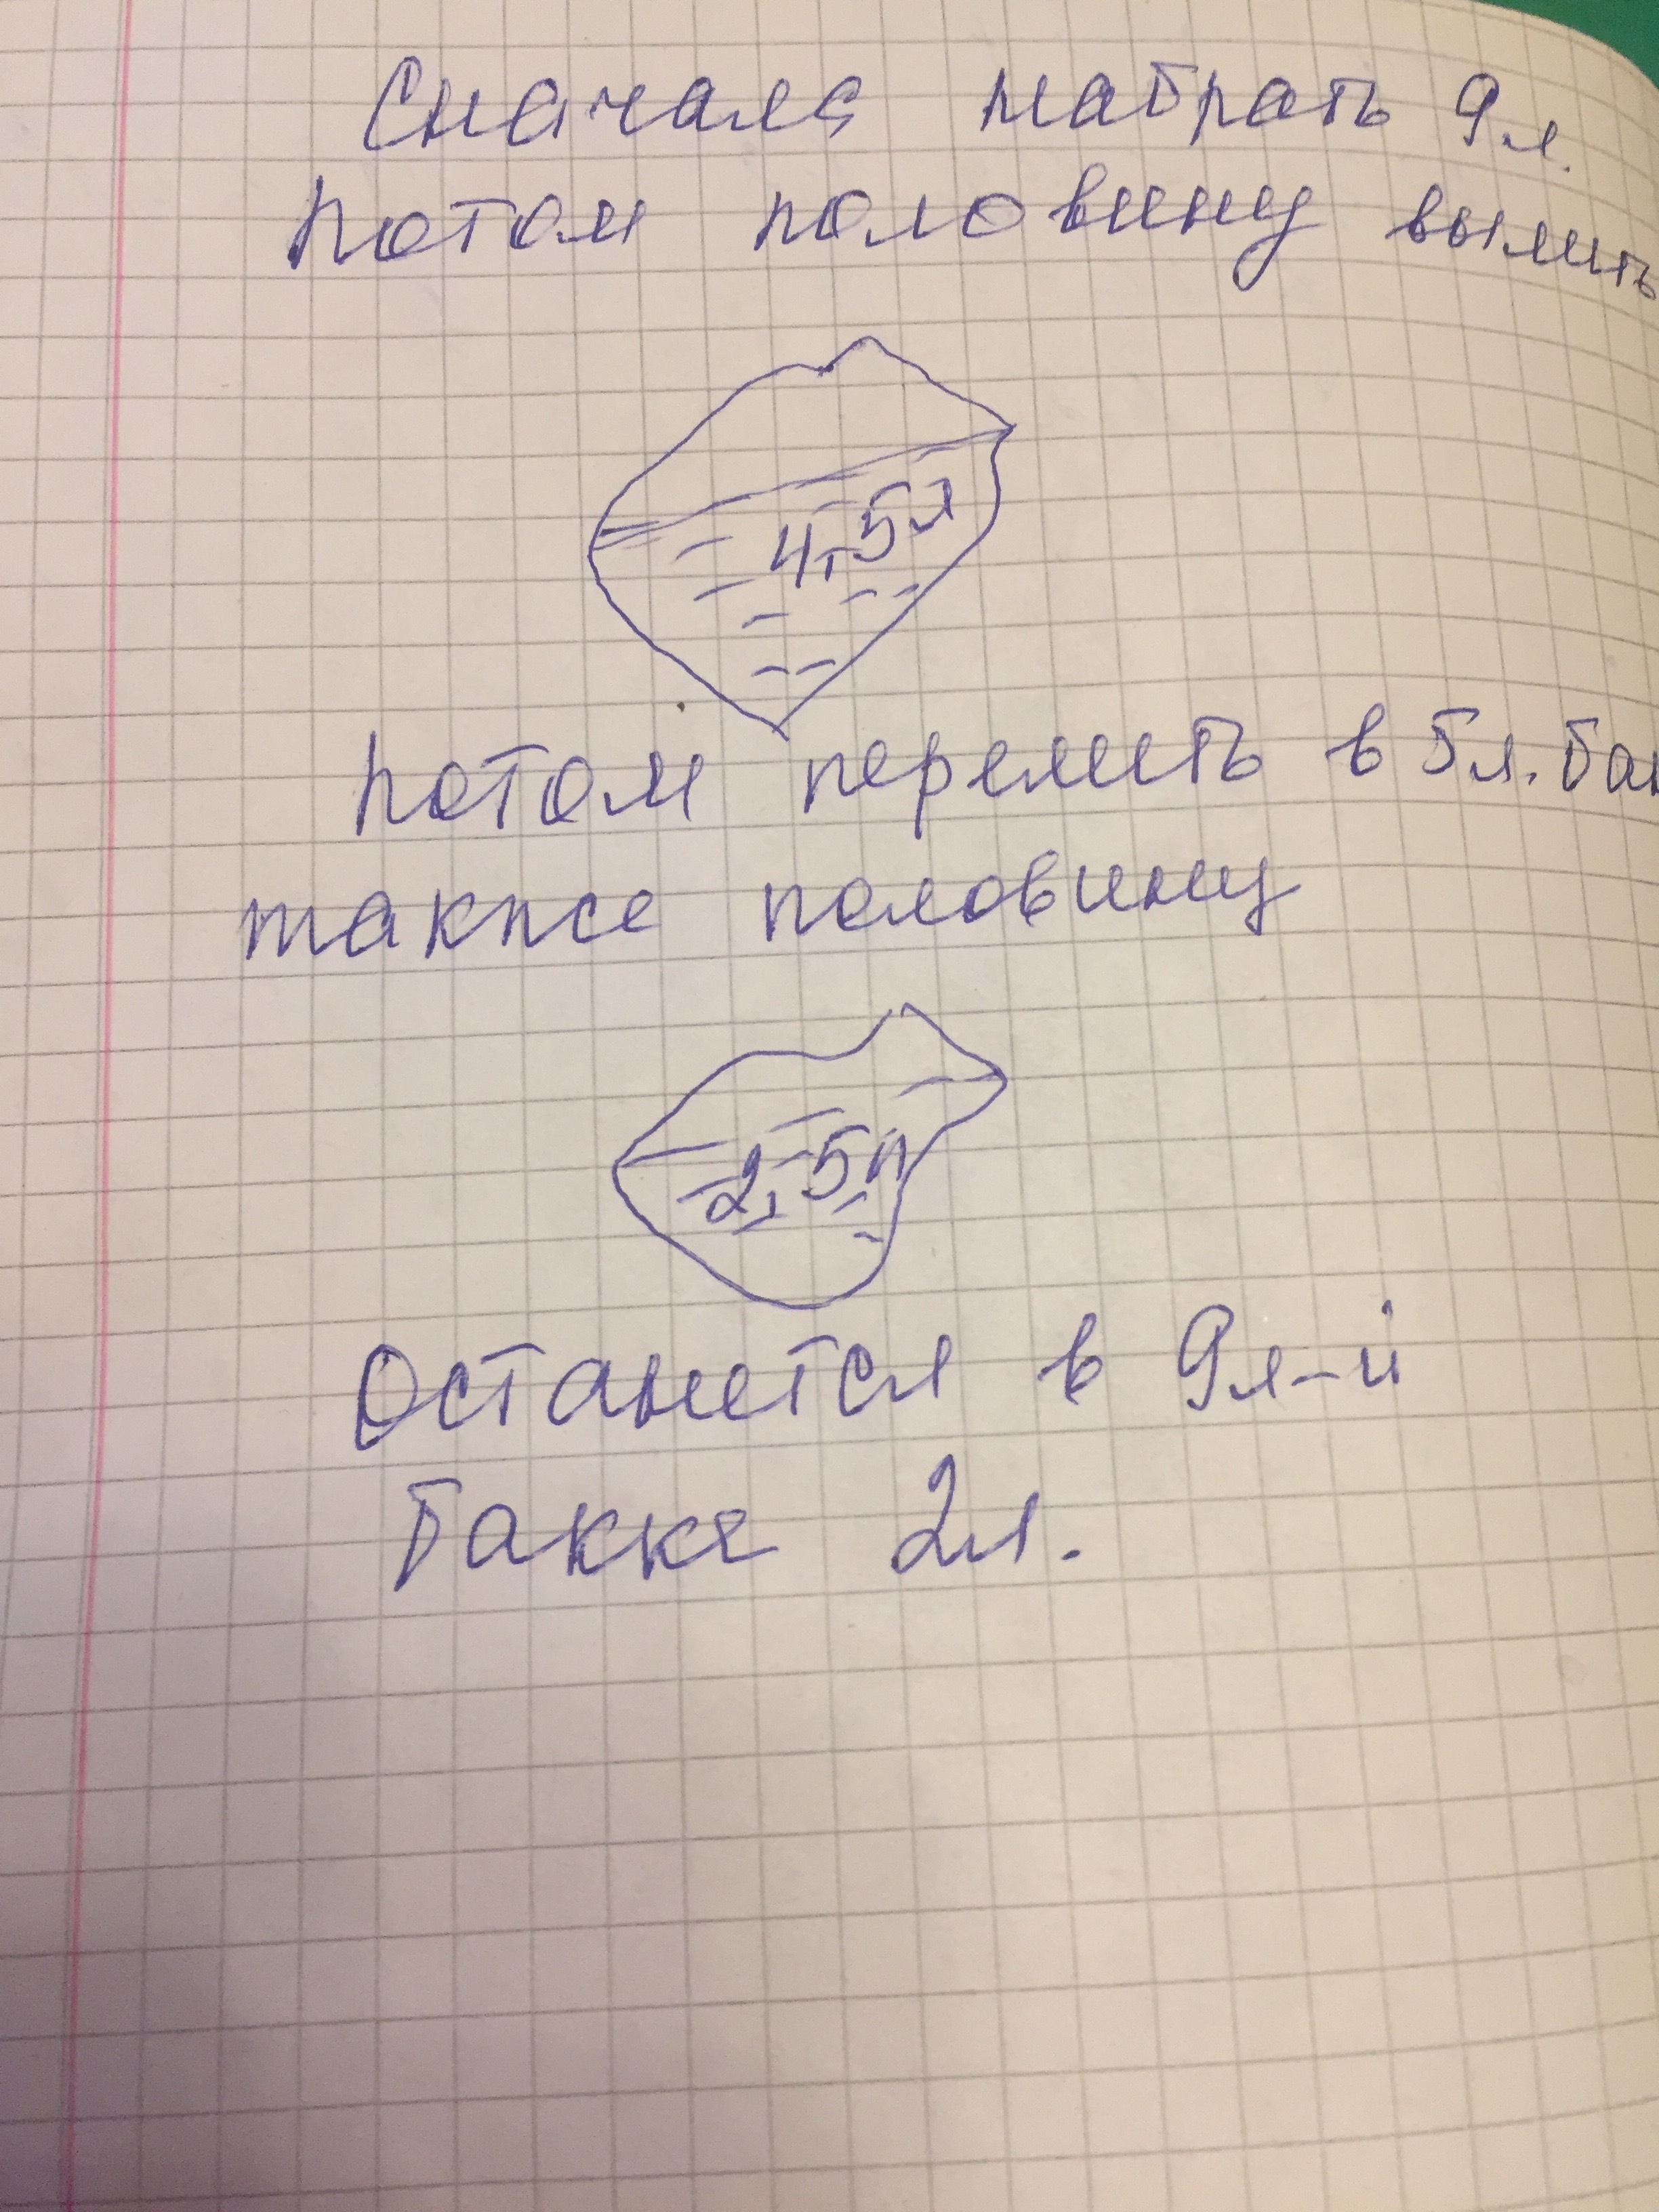 Сначала набрать 9л.
Потом половину вылить
4,5л
Потом перелить в 5л. бан
также половину
2,5л
Останется в 9л-й
банке 2л.